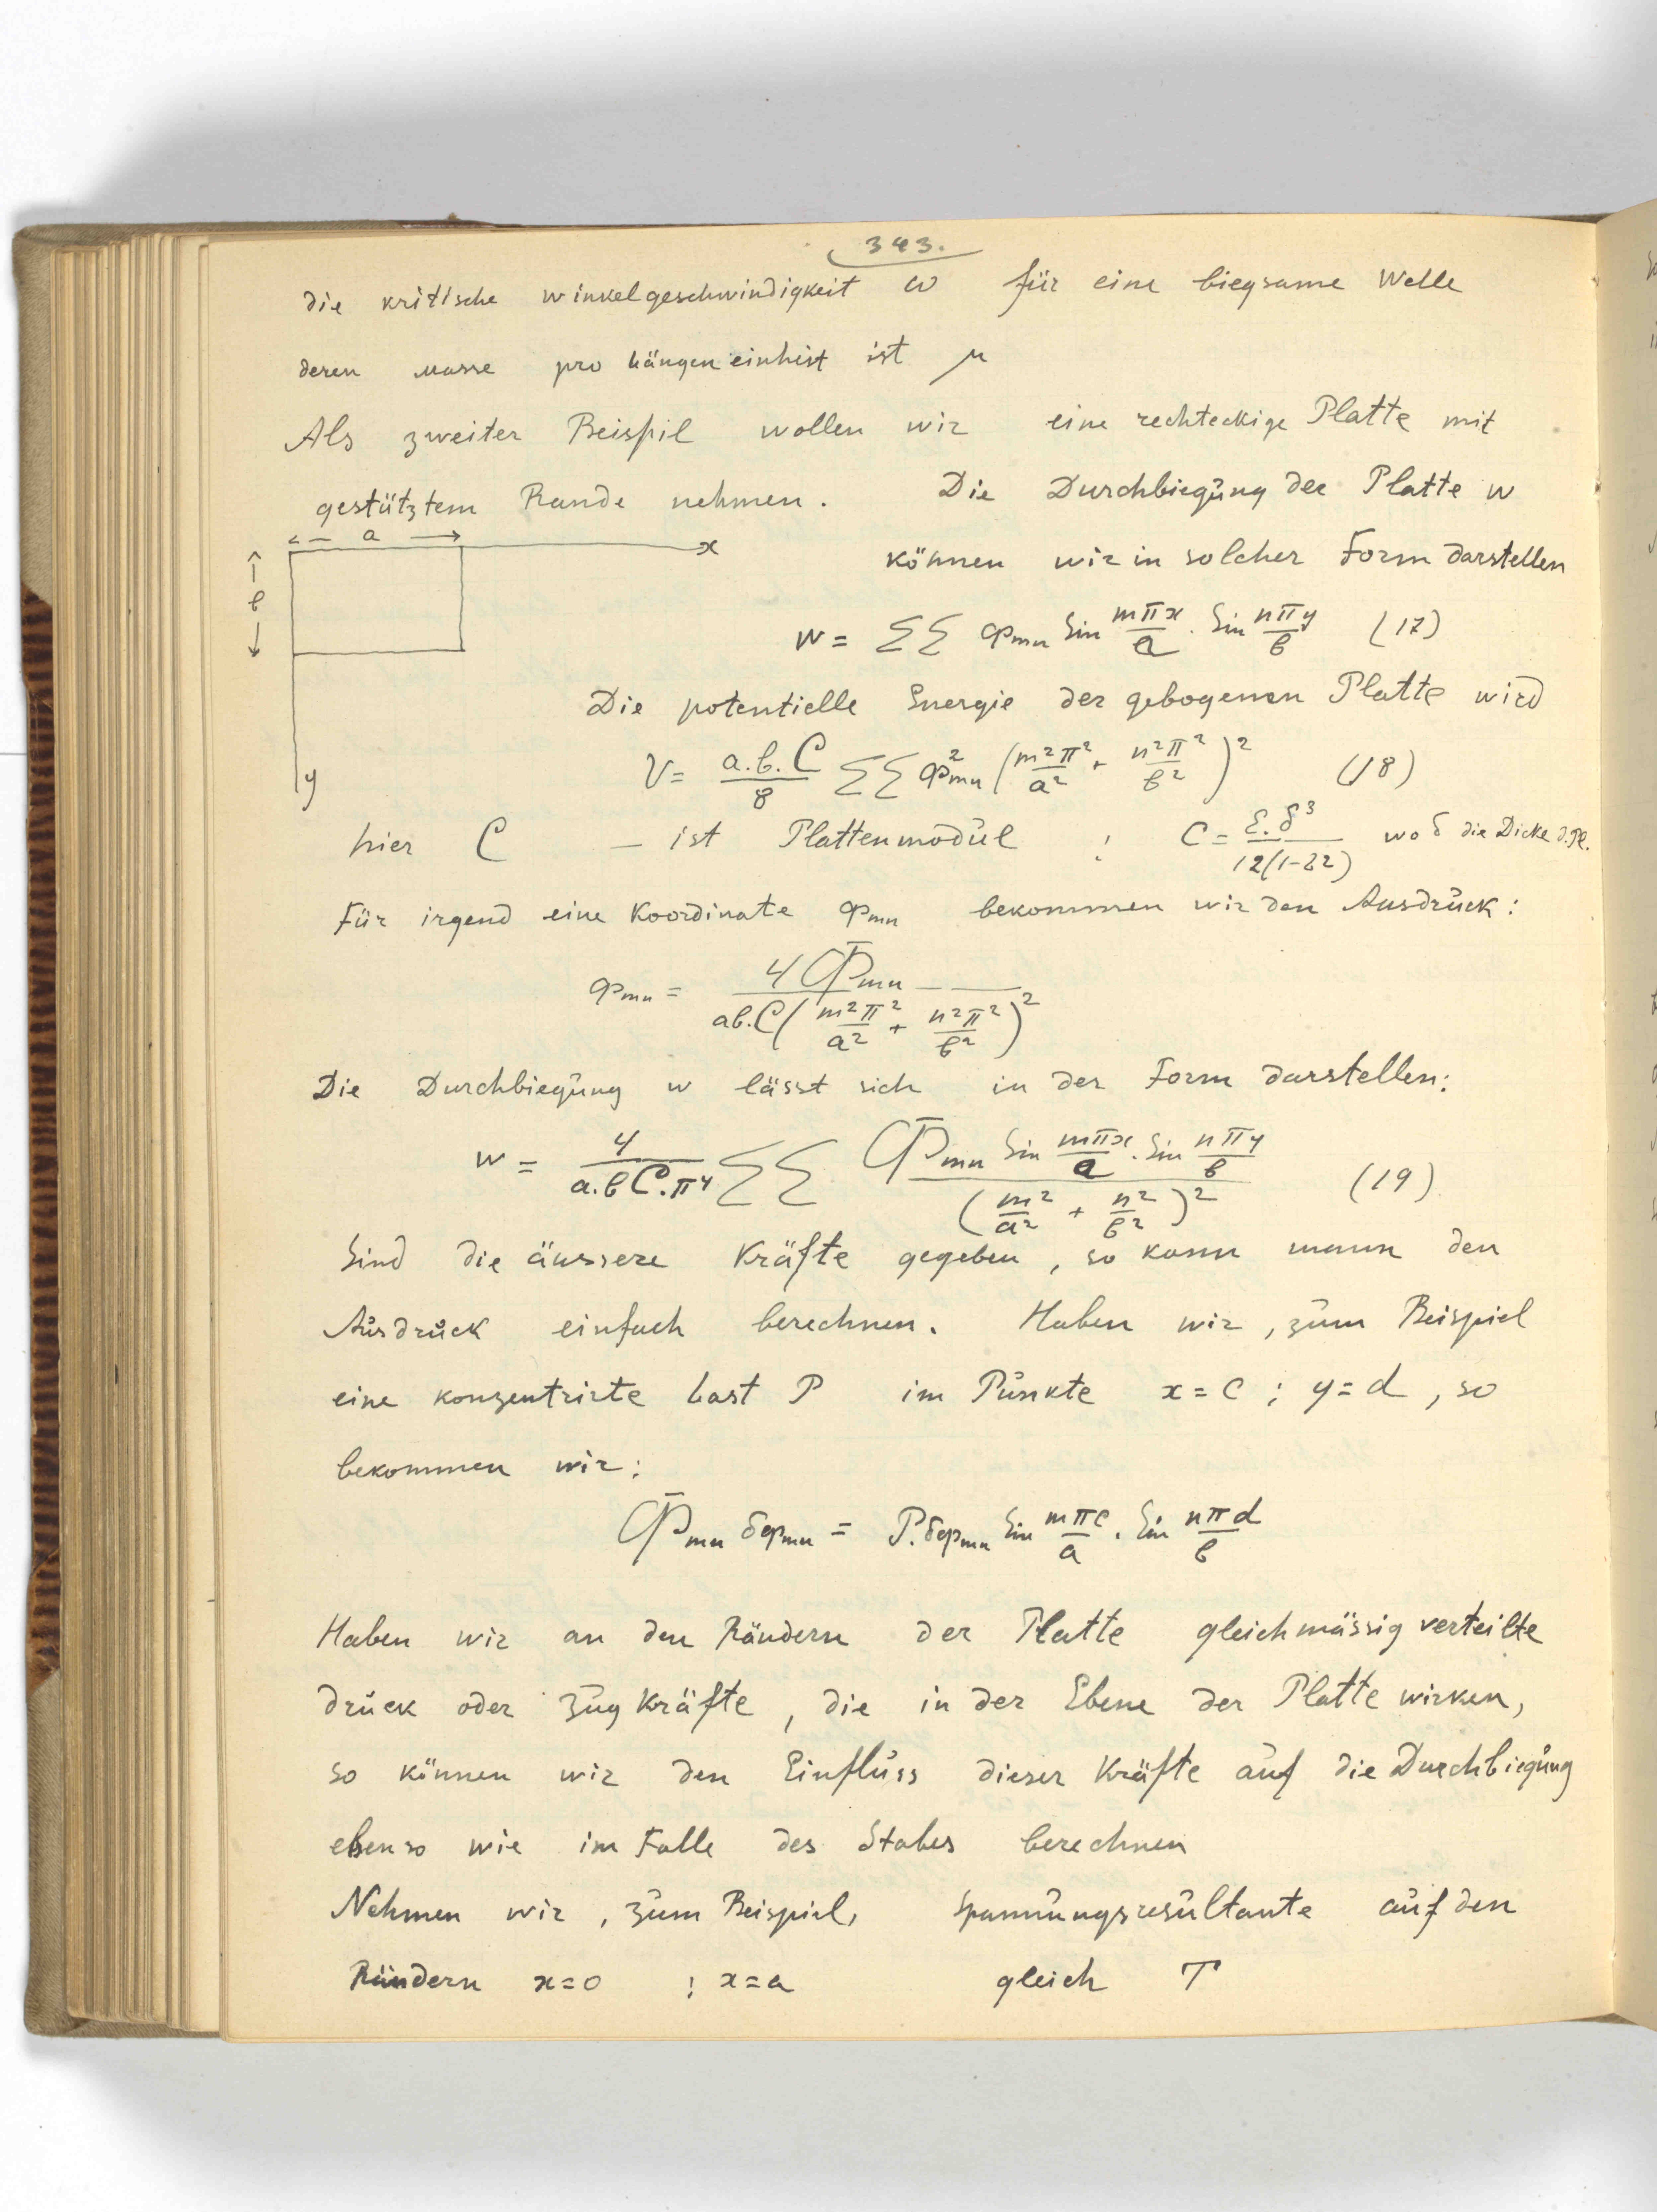 343.
die kritische winkelgeschwindigkeit ω für eine biegsame Welle
deren masse pro Längeneinheit ist μ
Als zweiter Beispil wollen wir eine rechteckige Platte mit
gestütztem Rande nehmen. Die Durchbiegung der Platte w
a x
können wir in solcher Form darstellen
b
w = ΣΣ φmn Sin mπx/a · Sin nπy/b (17)
Die potentielle Energie der gebogenen Platte wird
V = a.b.C/8 ΣΣ φ²mn (m²π²/a² + n²π²/b²)² (18)
y
hier C – ist Plattenmodul ; C = ε.δ³/12(1-σ²) wo δ die Dicke d. Pl.
Für irgend eine Koordinate φmn bekommen wir den Ausdruck:
φmn = 4Φmn/ab.C(m²π²/a² + n²π²/b²)²
Die Durchbiegung w lässt sich in der Form darstellen:
w = 4/a.bC.π⁴ ΣΣ Φmn Sin mπx/a · Sin nπy/b / (m²/a² + n²/b²)² (19)
Sind die äussere Kräfte gegeben, so kann mann den
Ausdruck einfach berechnen. Haben wir, zum Beispiel
eine konzentrirte Last P im Punkte x = c ; y = d, so
bekommen wir:
Φmn δφmn = P.δφmn Sin mπc/a · Sin nπd/b
Haben wir an den Rändern der Platte gleichmässig verteilte
druck oder Zug Kräfte, die in der Ebene der Platte wirken,
so können wir den Einfluss dieser Kräfte auf die Durchbiegung
ebenso wie im Falle des Stabes berechnen
Nehmen wir, zum Beispiel, Spannungsresultante auf den
Rändern x=0 ; x=a gleich T